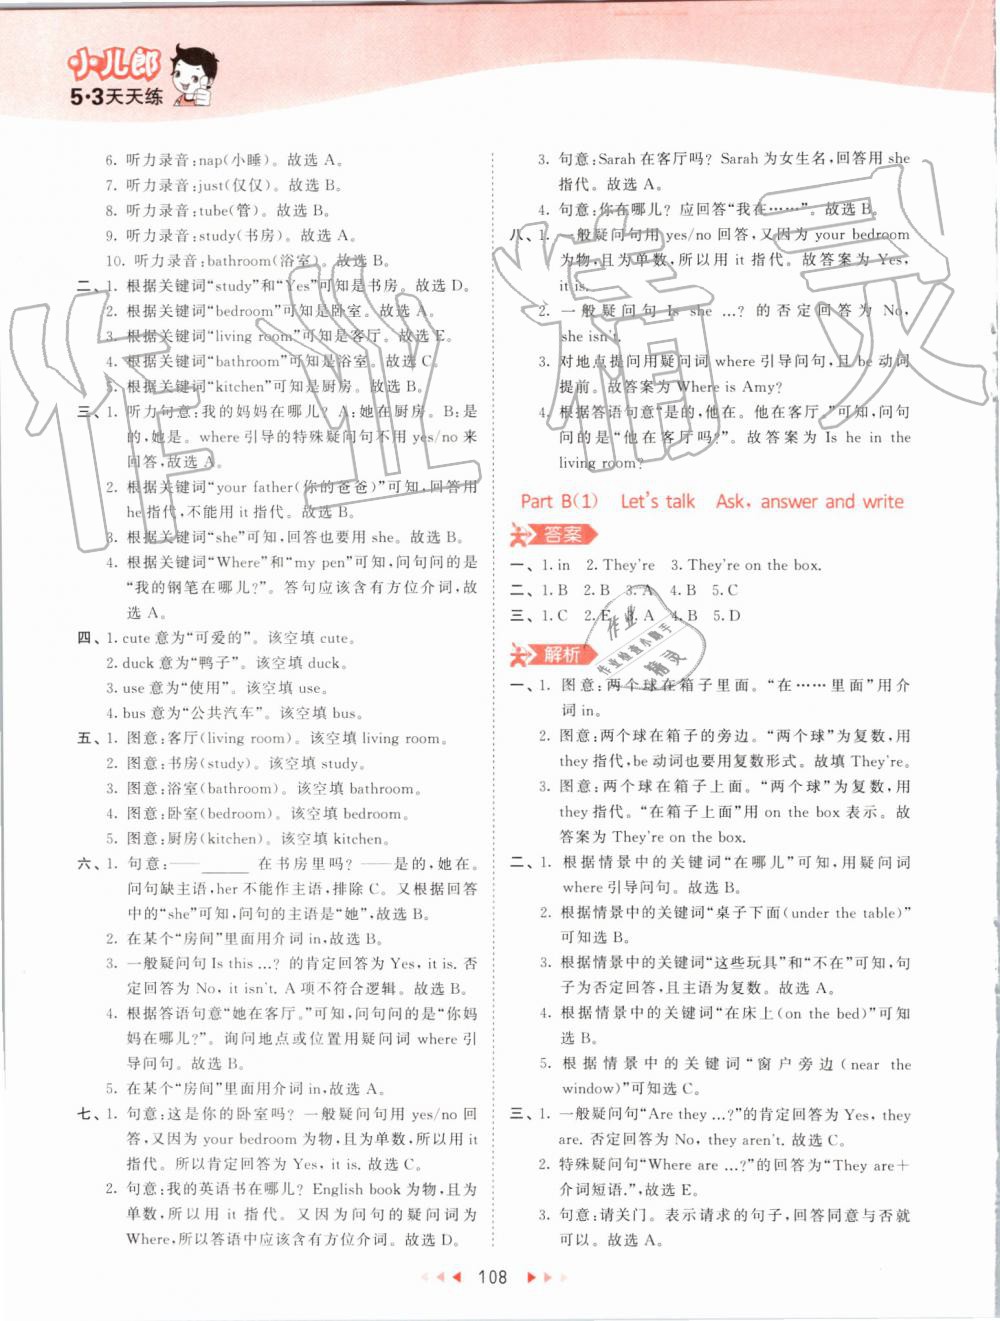 小儿郎
5·3天天练
6. 听力录音:nap(小睡)。故选 A。
7. 听力录音:just(仅仅)。故选 B。
8. 听力录音:tube(管)。故选 B。
9. 听力录音:study(书房)。故选 A。
10. 听力录音:bathroom(浴室)。故选 B。
二、1. 根据关键词“study”和“Yes”可知是书房。故选 D。
2. 根据关键词“bedroom”可知是卧室。故选 A。
3. 根据关键词“living room”可知是客厅。故选 E。
4. 根据关键词“bathroom”可知是浴室。故选 C。
5. 根据关键词“kitchen”可知是厨房。故选 B。
三、1. 听力句意:我的妈妈在哪儿? A:她在厨房。B:是
的,她是。where 引导的特殊疑问句不用 yes/no 来
回答,故选 A。
2. 根据关键词“your father(你的爸爸)”可知,回答用
he 指代,不能用 it 指代。故选 B。
3. 根据关键词“she”可知,回答也要用 she。故选 B。
4. 根据关键词“Where”和“my pen”可知,问句问的是
“我的钢笔在哪儿?”。答句应该含有方位介词,故
选 A。
四、1. cute 意为“可爱的”。该空填 cute。
2. duck 意为“鸭子”。该空填 duck。
3. use 意为“使用”。该空填 use。
4. bus 意为“公共汽车”。该空填 bus。
五、1. 图意:客厅(living room)。该空填 living room。
2. 图意:书房(study)。该空填 study。
3. 图意:浴室(bathroom)。该空填 bathroom。
4. 图意:卧室(bedroom)。该空填 bedroom。
5. 图意:厨房(kitchen)。该空填 kitchen。
六、1. 句意:—— ______ 在书房里吗? ——是的,她在。
问句缺主语,her 不能作主语,排除 C。又根据回答
中的“she”可知,问句的主语是“她”,故选 B。
2. 在某个“房间”里面用介词 in,故选 B。
3. 一般疑问句 Is this …? 的肯定回答为 Yes, it is. 否
定回答为 No, it isn't. A 项不符合逻辑。故选 B。
4. 根据答语句意“她在客厅。”可知,问句问的是“你妈
妈在哪儿?”。询问地点或位置用疑问词 where 引
导问句。故选 B。
5. 在某个“房间”里面用介词 in,故选 A。
七、1. 句意:这是你的卧室吗? 一般疑问句用 yes/no 回
答,又因为 your bedroom 为物,且为单数,所以用 it
指代。所以肯定回答为 Yes, it is. 故选 C。
2. 句意:我的英语书在哪儿? English book 为物,且为
单数,所以用 it 指代。又因为问句的疑问词为
Where,所以答语中应该含有方位介词。故选 D。
3. 句意:Sarah 在客厅吗? Sarah 为女生名,回答用 she
指代。故选 A。
4. 句意:你在哪儿? 应回答“我在……”。故选 B。
八、1. 一般疑问句用 yes/no 回答,又因为 your bedroom
为物,且为单数,所以用 it 指代。故答案为 Yes,
it is.
2. 一般疑问句 Is she …? 的否定回答为 No,
she isn't.
3. 对地点提问用疑问词 where 引导问句,且 be 动词
提前。故答案为 Where is Amy?
4. 根据答语句意“是的,他在。他在客厅。”可知,问句
问的是“他在客厅吗?”。故答案为 Is he in the
living room?
Part B(1) Let's talk Ask, answer and write
答案
一、1. in 2. They're 3. They're on the box.
二、1. B 2. B 3. A 4. B 5. C
三、1. C 2. E 3. A 4. B 5. D
解析
一、1. 图意:两个球在箱子里面。“在……里面”用介
词 in。
2. 图意:两个球在箱子的旁边。“两个球”为复数,用
they 指代,be 动词也要用复数形式。故填 They're。
3. 图意:两个球在箱子上面。“两个球”为复数,用
they 指代。“在箱子上面”用 on the box 表示。故
答案为 They're on the box.
二、1. 根据情景中的关键词“在哪儿”可知,用疑问词
where 引导问句。故选 B。
2. 根据情景中的关键词“桌子下面(under the table)”
可知选 B。
3. 根据情景中的关键词“这些玩具”和“不在”可知,句
子为否定回答,且主语为复数。故选 A。
4. 根据情景中的关键词“在床上(on the bed)”可知
选 B。
5. 根据情景中的关键词“窗户旁边(near the
window)”可知选 C。
三、1. 一般疑问句“Are they …?”的肯定回答为 Yes, they
are. 否定回答为 No, they aren't. 故选 C。
2. 特殊疑问句“Where are …?”的回答为“They are+
介词短语.”,故选 E。
3. 句意:请关门。表示请求的句子,回答同意与否就
可以。故选 A。
108
作业精灵
作业
作业检查小助手
精灵